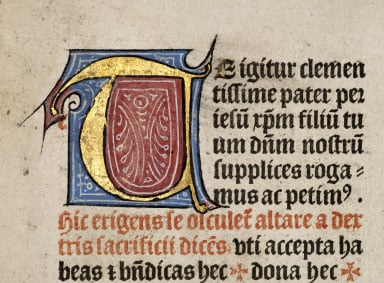 TE igitur clemen
tissime pater per
iesū xp̄m filiū tu
um dn̄m nostrū
supplices roga⸗
mus ac petimꝰ.
Hic erigens se osculet̉ altare a dex
tris sacrificii dicēs. vti accepta ha
beas ⁊ bn̄dicas hec ✠ dona hec ✠